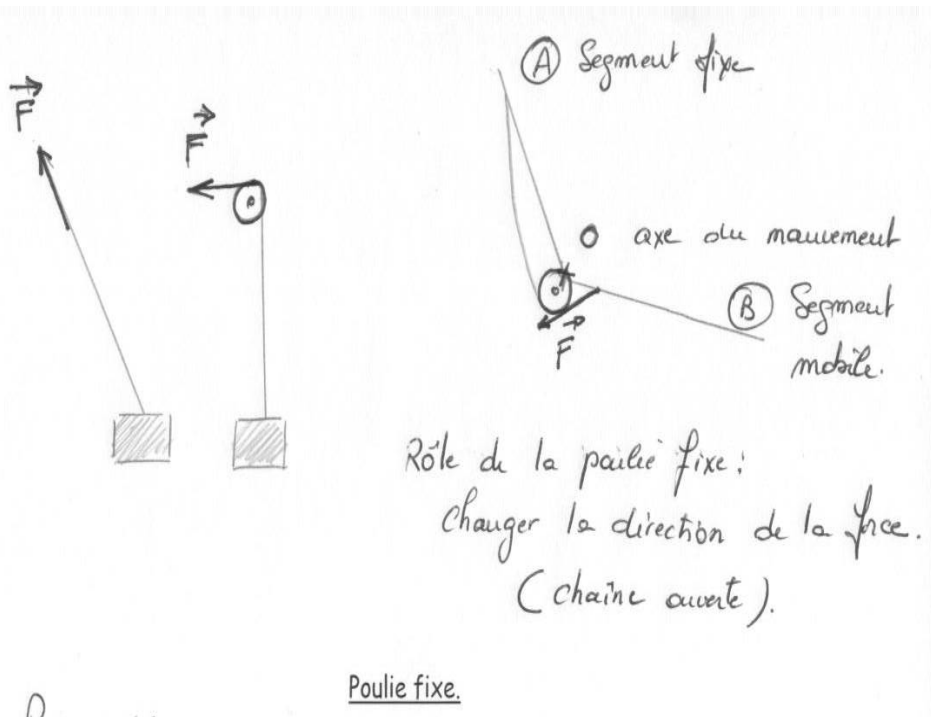 F
F
A Segment fixe
O axe du mouvement
B Segment
mobile.
F
Rôle de la poulie fixe :
changer la direction de la force.
(chaîne ouverte).
Poulie fixe.